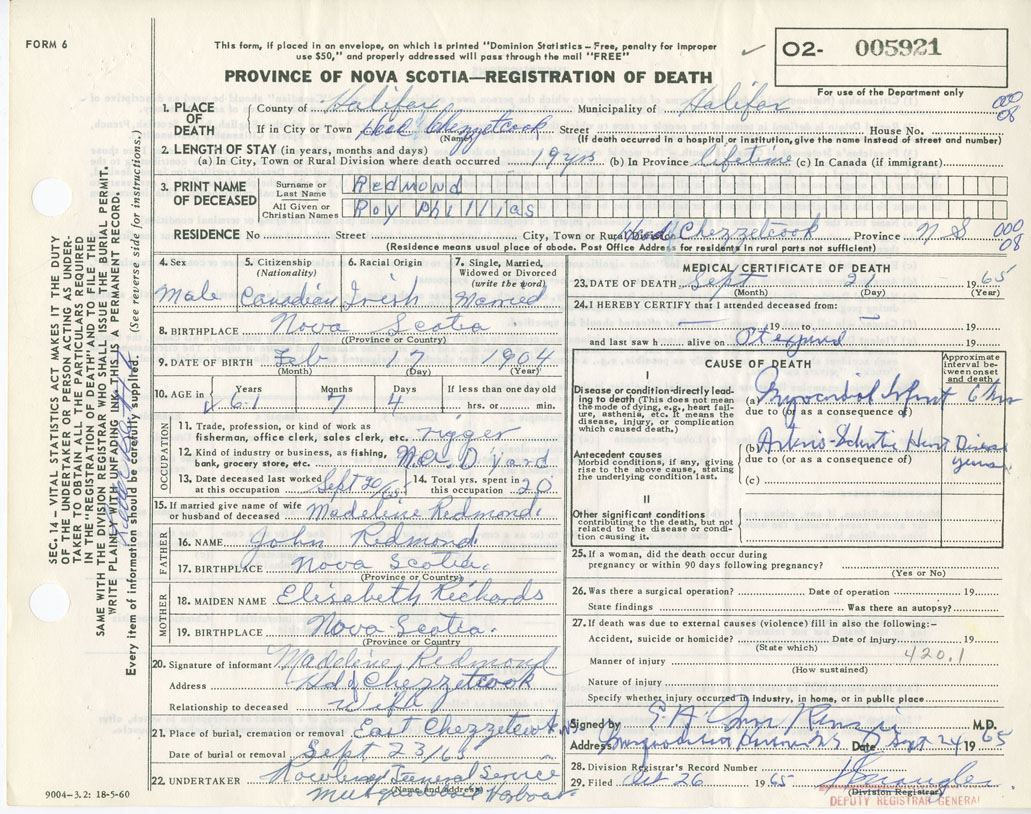 FORM 6
This form, if placed in an envelope, on which is printed "Dominion Statistics — Free, penalty for improper
use $50," and properly addressed will pass through the mail "FREE"
PROVINCE OF NOVA SCOTIA—REGISTRATION OF DEATH
O2- 005921
For use of the Department only
1. PLACE OF DEATH
County of Halifax Municipality of Halifax 000 08
If in City or Town Head Chezzetcook Street House No.
(Name) (If death occurred in a hospital or institution, give the name instead of street and number)
2. LENGTH OF STAY (in years, months and days)
(a) In City, Town or Rural Division where death occurred 19 yrs (b) In Province lifetime (c) In Canada (if immigrant)
3. PRINT NAME OF DECEASED
Surname or Last Name Redmond
All Given or Christian Names Roy Phillias
RESIDENCE No Street City, Town or Rural Division Head Chezzetcook Province N S 000 08
(Residence means usual place of abode. Post Office Address for residents in rural parts not sufficient)
4. Sex Male
5. Citizenship (Nationality) Canadian
6. Racial Origin Irish
7. Single, Married, Widowed or Divorced (write the word) Married
8. BIRTHPLACE Nova Scotia
(Province or Country)
9. DATE OF BIRTH Feb 17 1904
(Month) (Day) (Year)
10. AGE in Years 61 Months 7 Days 4 If less than one day old hrs. or min.
OCCUPATION
11. Trade, profession, or kind of work as
fisherman, office clerk, sales clerk, etc. rigger
12. Kind of industry or business, as fishing,
bank, grocery store, etc. Yard
13. Date deceased last worked
at this occupation Sept 20/65
14. Total yrs. spent in
this occupation 20
15. If married give name of wife
or husband of deceased Madeline Redmond
FATHER
16. NAME John Redmond
17. BIRTHPLACE Nova Scotia.
(Province or Country)
MOTHER
18. MAIDEN NAME Elisabeth Richards
19. BIRTHPLACE Nova Scotia.
(Province or Country)
20. Signature of informant Madeline Redmond
Address Hd of Chezzetcook
Relationship to deceased Wife
21. Place of burial, cremation or removal East Chezzetcook N.S.
Date of burial or removal Sept 23/65
22. UNDERTAKER Funeral Service
(Name and address)
Musquodoboit Harbour
9004—3.2: 18-5-60
MEDICAL CERTIFICATE OF DEATH
23. DATE OF DEATH Sept 21 1965
(Month) (Day) (Year)
24. I HEREBY CERTIFY that I attended deceased from:
19 to 19
and last saw h alive on 19
CAUSE OF DEATH
Approximate interval between onset and death
I
Disease or condition directly leading to death (This does not mean the mode of dying, e.g., heart failure, asthenia, etc. It means the disease, injury, or complication which caused death.)
(a) Myocardial Infarct 6 hrs
due to (or as a consequence of)
Antecedent causes
Morbid conditions, if any, giving rise to the above cause, stating the underlying condition last.
(b) Heart Disease years
due to (or as a consequence of)
(c)
II
Other significant conditions
contributing to the death, but not related to the disease or condition causing it.
25. If a woman, did the death occur during
pregnancy or within 90 days following pregnancy?
(Yes or No)
26. Was there a surgical operation? Date of operation 19
State findings Was there an autopsy?
27. If death was due to external causes (violence) fill in also the following:—
Accident, suicide or homicide? Date of injury 19
(State which) 420.1
Manner of injury
(How sustained)
Nature of injury
Specify whether injury occurred in industry, in home, or in public place
Signed by M.D.
Address Date Sept 24 1965
28. Division Registrar's Record Number
29. Filed Oct 26 1965
(Division Registrar)
DEPUTY REGISTRAR GENERAL
SEC. 14 – VITAL STATISTICS ACT MAKES IT THE DUTY
OF THE UNDERTAKER OR PERSON ACTING AS UNDER-
TAKER TO OBTAIN ALL THE PARTICULARS REQUIRED
IN THE "REGISTRATION OF DEATH" AND TO FILE THE
SAME WITH THE DIVISION REGISTRAR WHO SHALL ISSUE THE BURIAL PERMIT.
WRITE PLAINLY WITH UNFADING INK THIS IS A PERMANENT RECORD.
Every item of information should be carefully supplied. (See reverse side for instructions.)